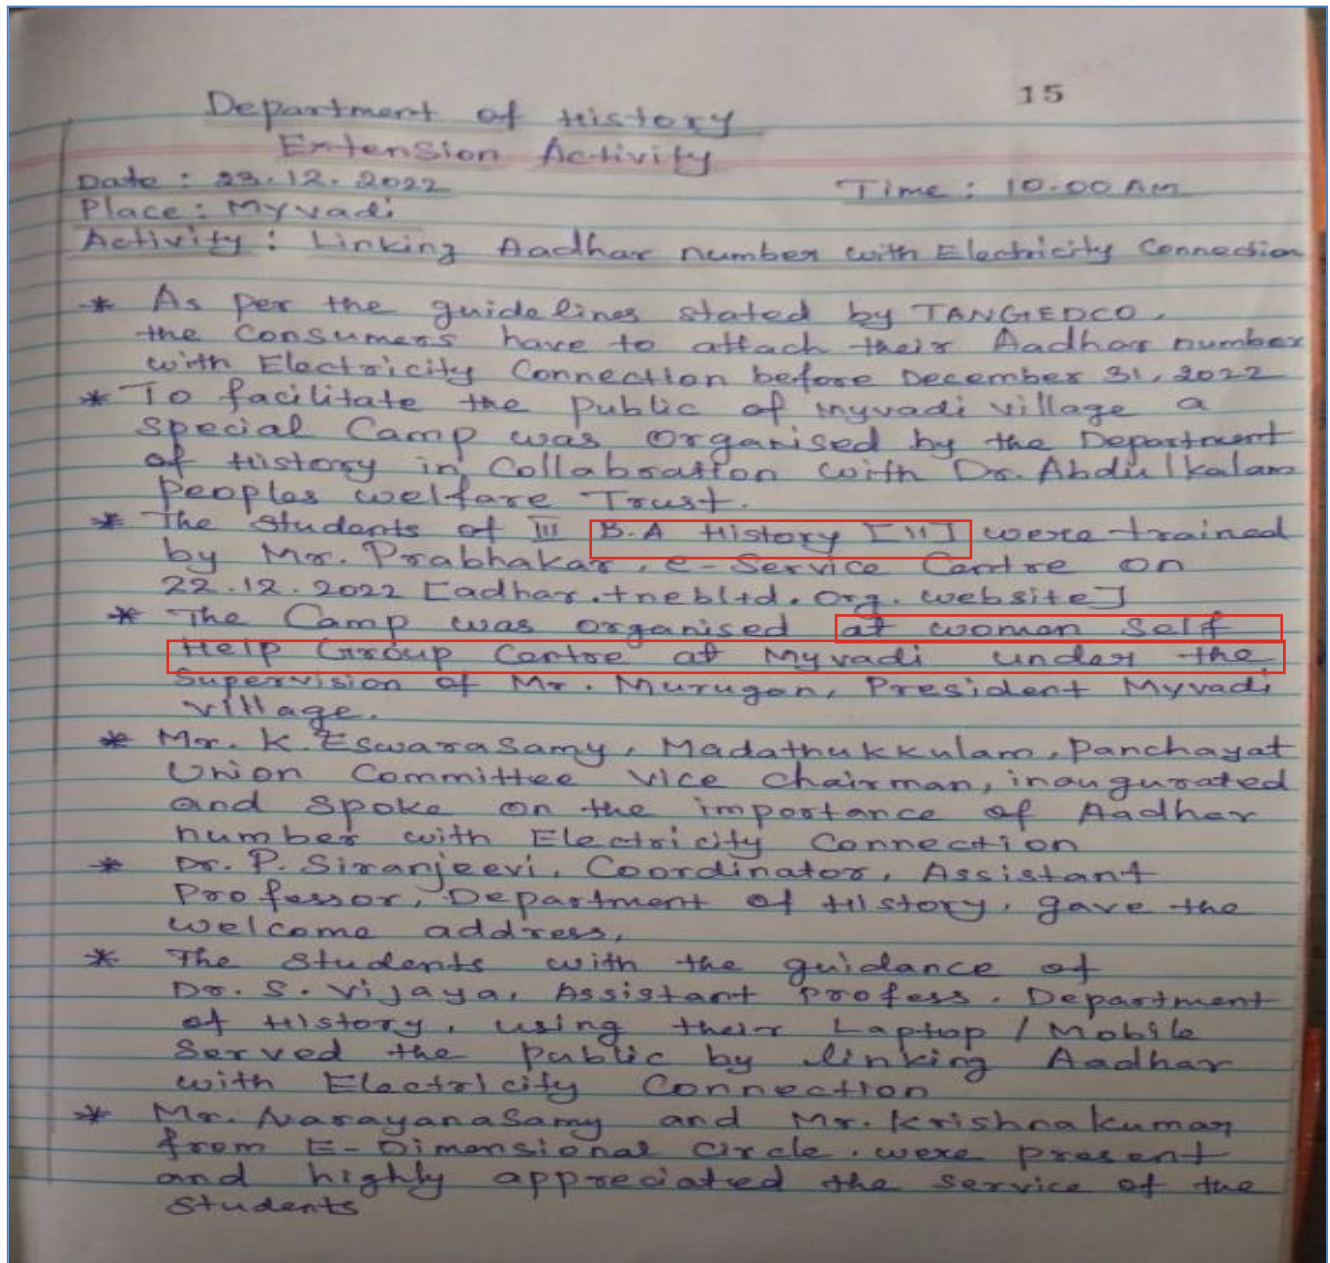 15
Department of History
Extension Activity
Date : 23.12.2022 Time : 10.00 Am
Place : Myvadi
Activity : Linking Aadhar number with Electricity Connection
* As per the guidelines stated by TANGEDCO,
the Consumers have to attach their Aadhar number
with Electricity Connection before December 31, 2022
* To facilitate the public of Myvadi village a
Special Camp was organised by the Department
of History in Collaboration with Dr. Abdulkalam
Peoples welfare Trust.
* The students of III B.A History [11] were trained
by Mr. Prabhakar, e-Service Centre on
22.12.2022 [adhar.tnebltd.org. website]
* The Camp was organised at woman Self
Help Group Centre at Myvadi under the
Supervision of Mr. Murugan, President Myvadi
village.
* Mr. K. Eswarasamy, Madathukkulam, Panchayat
Union Committee Vice Chairman, inaugurated
and spoke on the importance of Aadhar
number with Electricity Connection
* Dr. P. Siranjeevi, Coordinator, Assistant
Professor, Department of History, gave the
welcome address,
* The Students with the guidance of
Dr. S. Vijaya, Assistant Profess. Department
of History, using their Laptop / Mobile
Served the public by linking Aadhar
with Electricity Connection
* Mr. NarayanaSamy and Mr. Krishnakumar
from E-Dimensional Circle, were present
and highly appreciated the service of the
Students